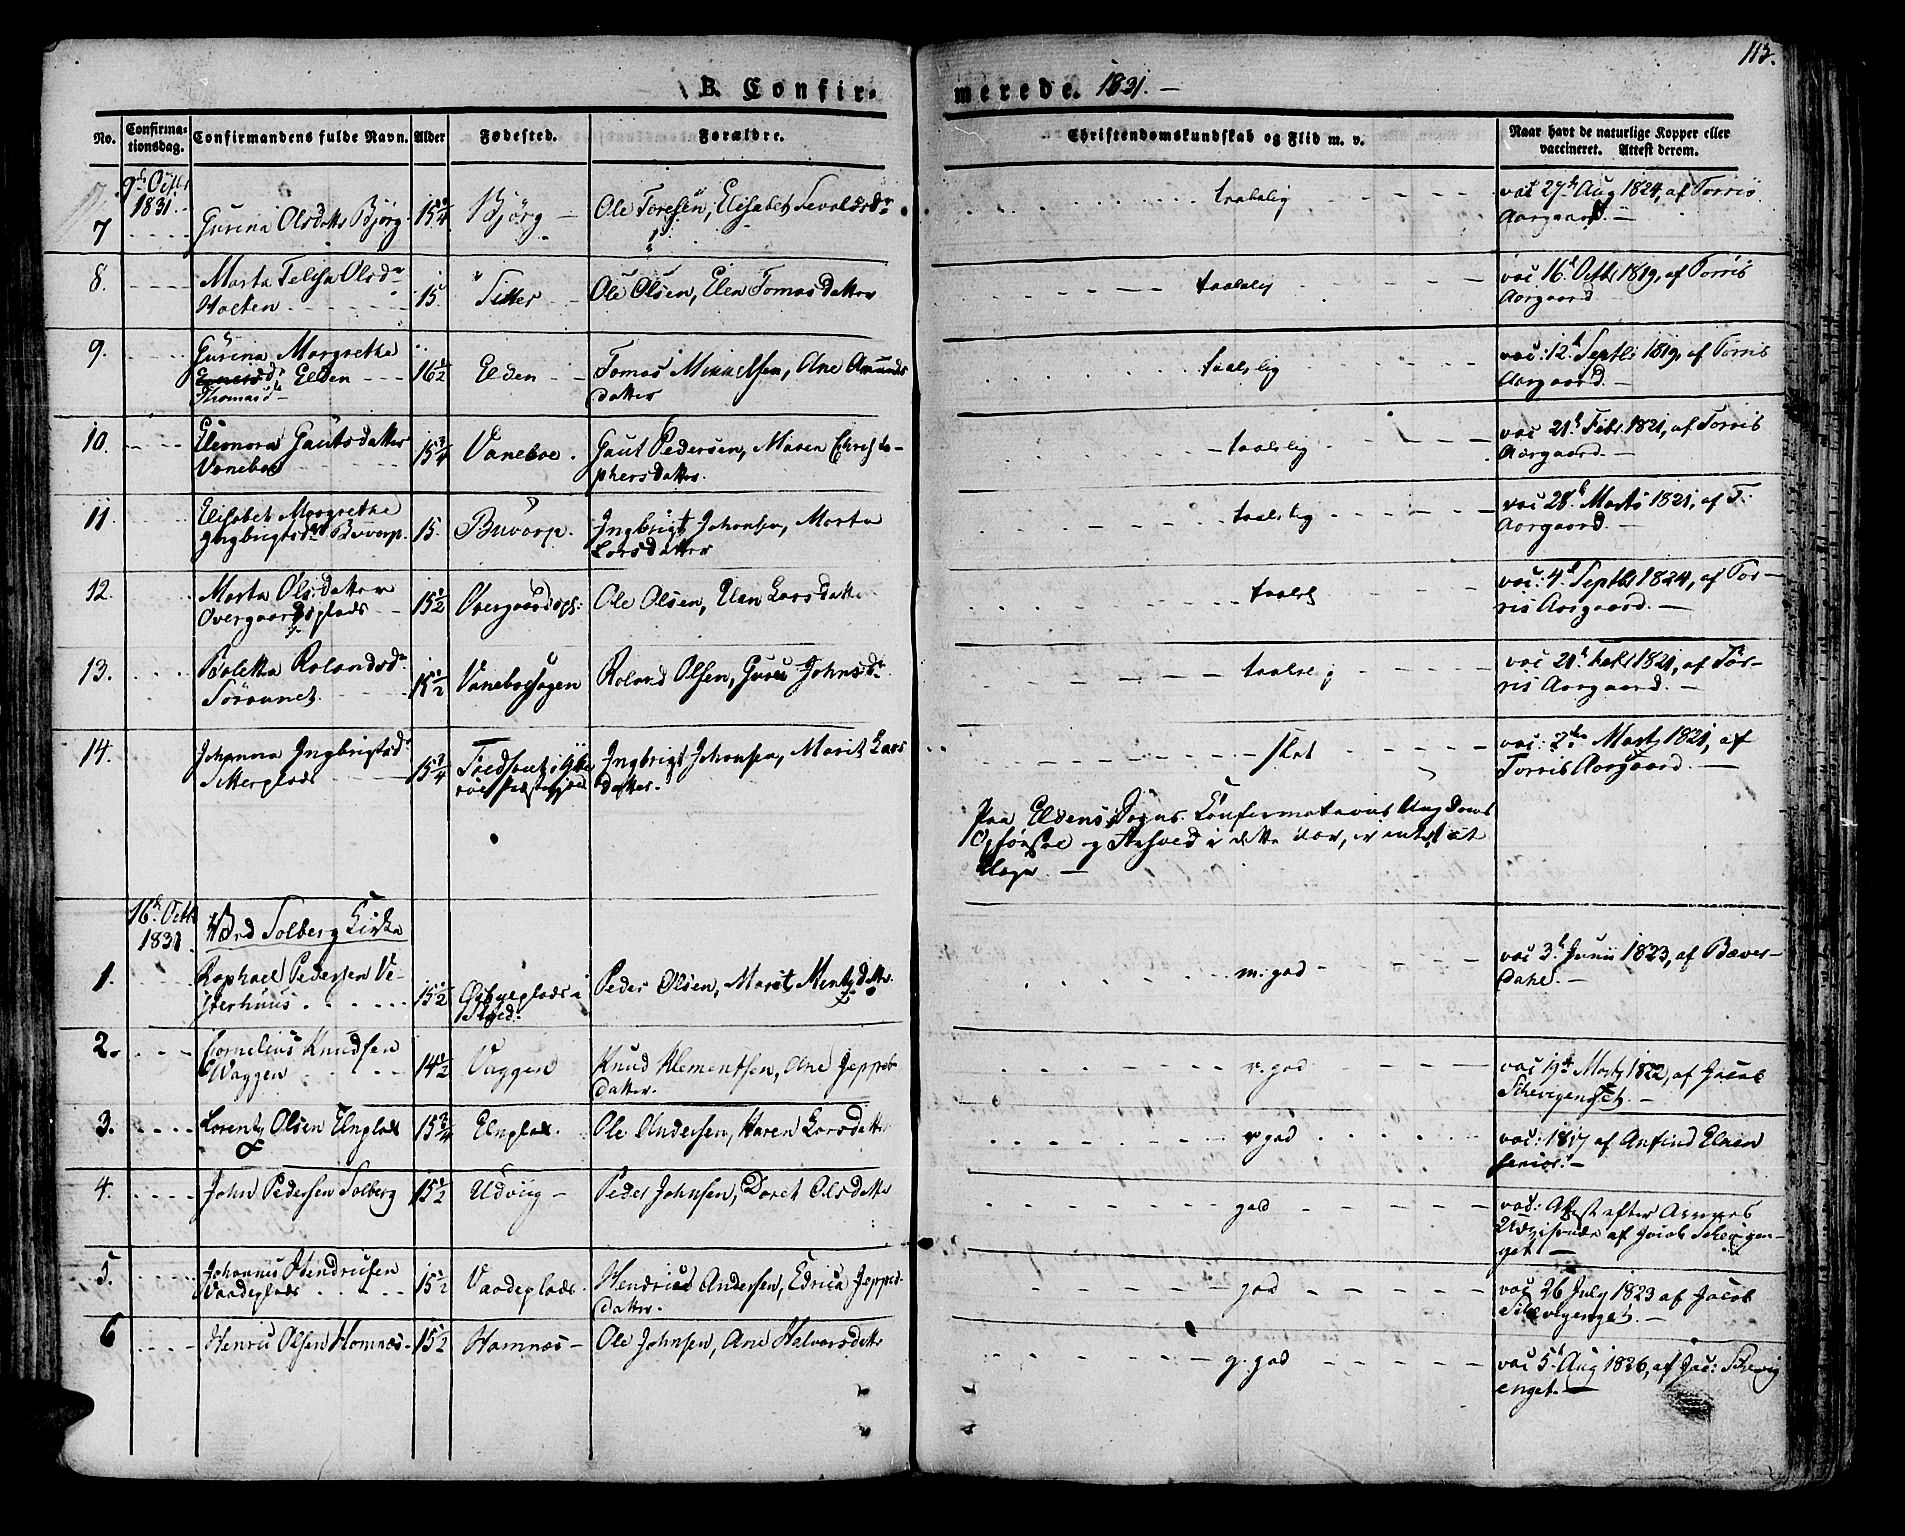 113.
B. Confirmerede. 1831. -
No. Confirmationsdag. Confirmandens fulde Navn. Alder Fødested. Forældre. Christendomskundskab og Flid m. v. Naar havt de naturlige Kopper eller vaccineret. Attest derom.
9h Octbr 1831.
7 Gurina Olsdatter Bjørg 15 1/4 Bjørg - Ole Toresen, Elisabet Sevaldsdr taalelig vac 27h Aug 1824, af Torris Aargaard. -
8. Marta Olsdr 15 Sitter Ole Olsen, Elen Tomasdatter taalelig vac 16h Octbr 1819, af Torris Aargaard
9. Gurina Margrethe Thomasd Elden 16 1/2 Elden Tomas Mikkelsen, Ane Amundsdatter taalelig vac: 12h Septbr 1819, af Torris Aargaard. -
10. Eleonora Gautsdatter Vaneboe 15 3/4 Vaneboe. Gaut Pedersen, Maren Christophersdatter. taalelig vac 21h Febr 1821, af Torris Aargaard. -
11. Elisabet Margrethe Ingbrigtsdr Buvarp. 15. Buvarp. Ingbrigt Johansen, Marta Larsdatter taalelig vac 28h Marts 1821, af T. Aargaard. -
12. Marta Olsdatter Overgaardsplads 15 1/2 Overgaardspl: Ole Olsen, Elen Larsdatter taalel vac: 4h Septbr 1824, af Torris Aargaard. -
13. Boletta Rolandsdr 15 1/2 Roland Olsen, Guru Johnsdr taalelig vac 21h 1821, af Torris Aargaard. -
14. Johanna Ingbrigtsdr Sitterplads 15 3/4 Ingbrigt Johansen, Marit Larsdatter. slet vac: 2de Marts 1821, af Torris Aargaard. -
Paa Eldens Sogns Confirmations Ungdoms Opførsel og i dette Aar, er intet at klage. -
16h Octbr 1831. Ved Solberg Kirke
1. Raphael Pedersen Vesterhuus 15 1/2 Peder Olsen, Marit Mentzdatter. m. god vac 3h Junii 1823, af Bæverdahl. -
2. Cornelius Knudsen Vaggen 14 1/2 Vaggen Knud Klementsen, Ane Jeppesdatter. v. god vac 19de Marts 1822, af Jacob
3. Lorentz Olsen Elnplads 15 3/4 Elnplad. Ole Andersen, Karen Larsdatter v god vac: 1817 af Anfind Elnen senior. -
4. John Pedersen Solberg 15 1/2 Udviig - Peder Johnsen, Doret Olsdatter god vac: Attest efter af Jacob
5. Johannes Hendricksen Vaadeplads 15 1/2 Vaadeplads. Hendrick Andersen, Jeppesdatter. god vac 26 July 1823 af Jacob
6 Henrik Olsen Hamnæs. 15 1/2 Hamnæs - Ole Johnsen, Ane Halvorsdatter g. god vac 5h Aug 1826, af Jac: